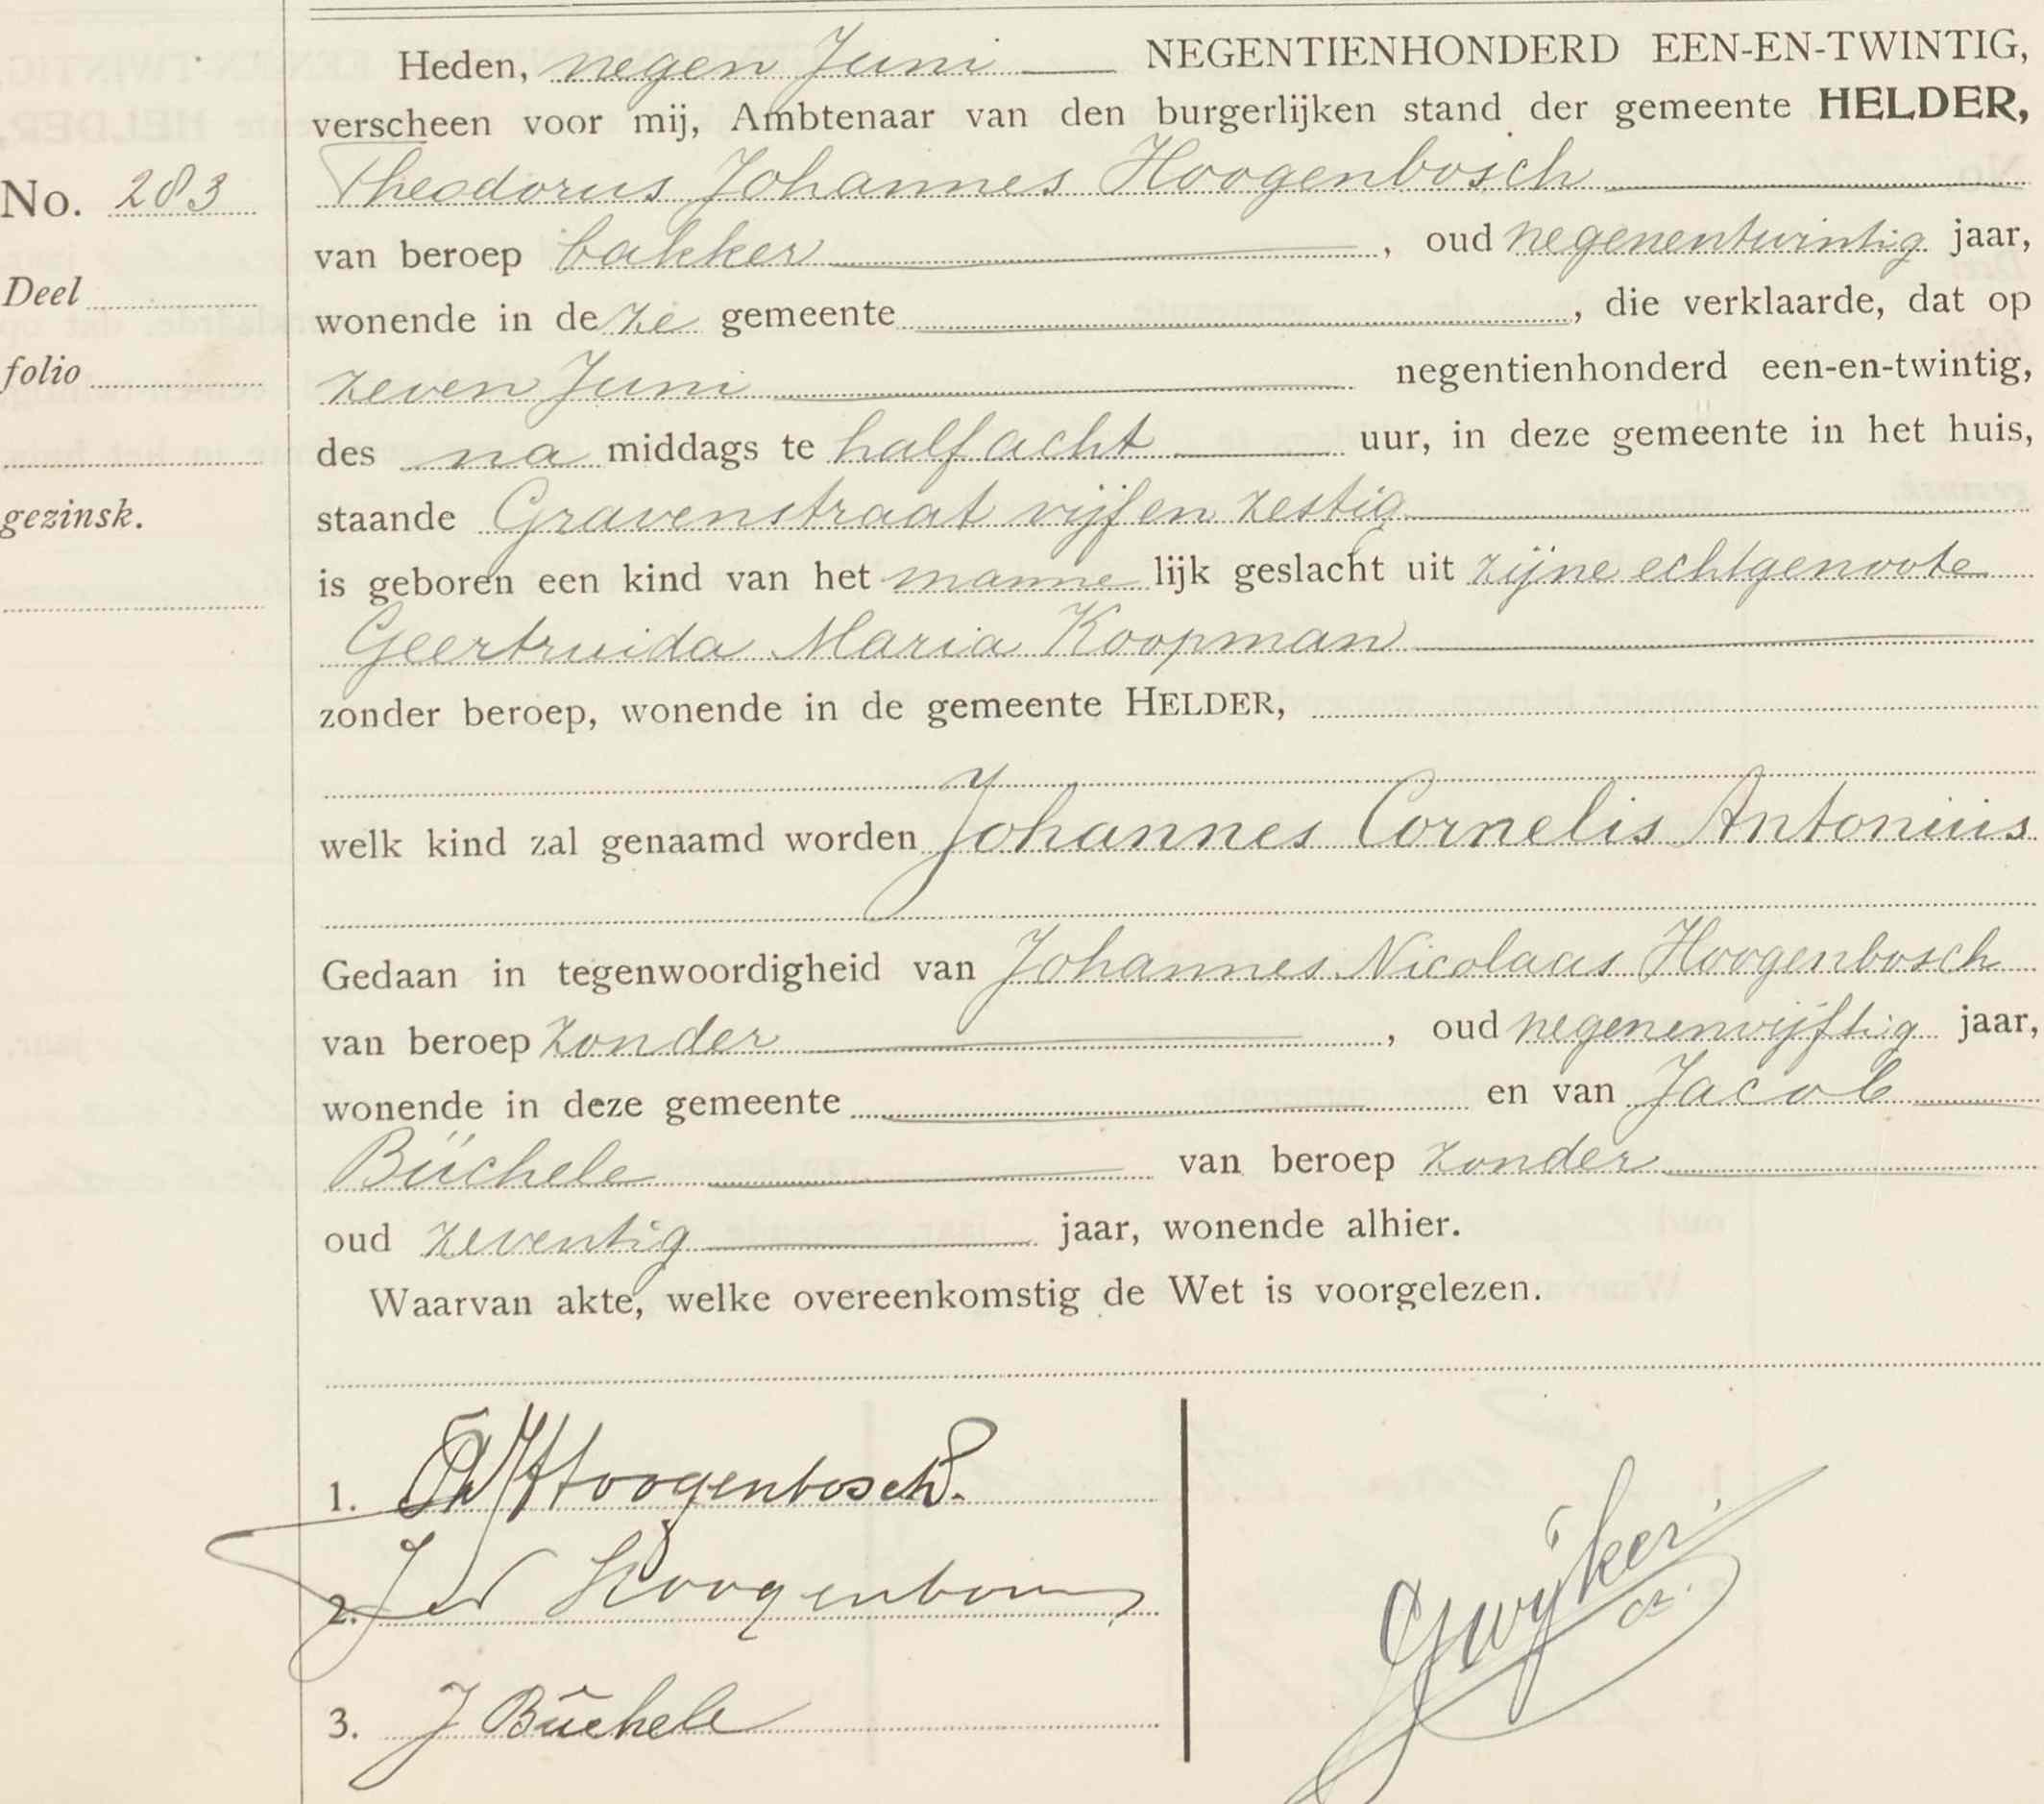 Heden, negen Juni NEGENTIENHONDERD EEN-EN-TWINTIG,
verscheen voor mij, Ambtenaar van den burgerlijken stand der gemeente HELDER,
No. 283
Theodorus Johannes Hoogenbosch
van beroep bakker, oud negenentwintig jaar,
Deel
wonende in deze gemeente, die verklaarde, dat op
folio
zeven Juni negentienhonderd een-en-twintig,
des na middags te half acht uur, in deze gemeente in het huis,
gezinsk.
staande Gravenstraat vijf en zestig
is geboren een kind van het mannelijk geslacht uit zijne echtgenoote
Geertruida Maria Koopman
zonder beroep, wonende in de gemeente HELDER,
welk kind zal genaamd worden Johannes Cornelis Antonius
Gedaan in tegenwoordigheid van Johannes Nicolaas Hoogenbosch
van beroep zonder, oud negenenvijftig jaar,
wonende in deze gemeente en van Jacob
Büchele van beroep zonder
oud zeventig jaar, wonende alhier.
Waarvan akte, welke overeenkomstig de Wet is voorgelezen.
1. Th J Hoogenbosch.
2. J N Hoogenbosch
3. J Büchele